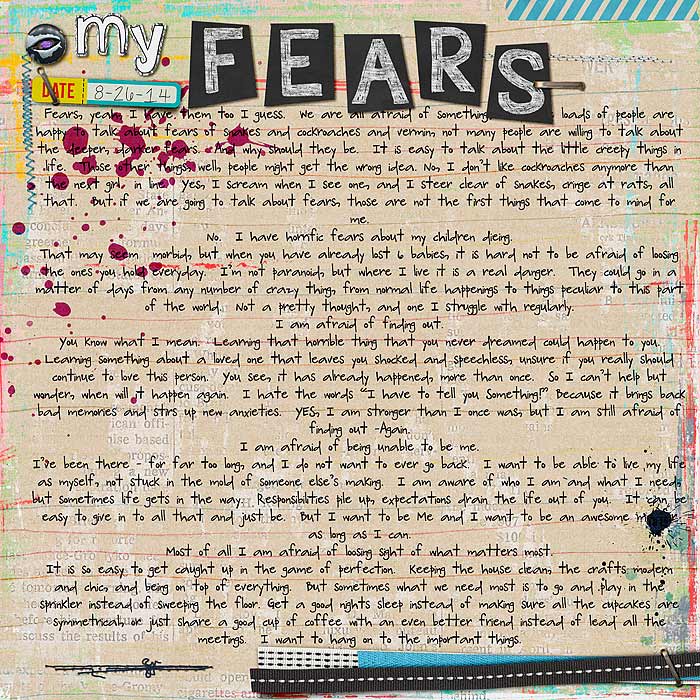 my FEARS
DATE 8-26-14
Fears, yeah, I have them too I guess. We are all afraid of something loads of people are
happy to talk about fears of snakes and cockroaches and vermin, not many people are willing to talk about
the deeper, darker fears. And why should they be. It is easy to talk about the little creepy things in
life. Those other things, well, people might get the wrong idea. No, I don't like cockroaches anymore than
the next girl in line. Yes, I scream when I see one, and I steer clear of snakes, cringe at rats, all
that. But if we are going to talk about fears, those are not the first things that come to mind for
me.
No. I have horrific fears about my children dieing.
That may seem morbid, but when you have already lost 6 babies, it is hard not to be afraid of loosing
the ones you hold everyday. I'm not paranoid, but where I live it is a real danger. They could go in a
matter of days from any number of crazy thing, from normal life happenings to things peculiar to this part
of the world. Not a pretty thought, and one I struggle with regularly.
I am afraid of finding out.
You know what I mean. Learning that horrible thing that you never dreamed could happen to you.
Learning something about a loved one that leaves you shocked and speechless, unsure if you really should
continue to love this person. You see, it has already happened, more than once. So I can't help but
wonder, when will it happen again. I hate the words "I have to tell you Something!" Because it brings back
bad memories and stirs up new anxieties. YES, I am stronger than I once was, but I am still afraid of
finding out -Again.
I am afraid of being unable to be me.
I've been there - for far too long, and I do not want to ever go back. I want to be able to live my life
as myself, not stuck in the mold of someone else's making. I am aware of who I am and what I need,
but sometimes life gets in the way. Responsibilities pile up, expectations drain the life out of you. It can be
easy to give in to all that and just be. But I want to be Me and I want to be an awesome
as long as I can.
Most of all I am afraid of loosing sight of what matters most.
It is so easy to get caught up in the game of perfection. Keeping the house clean, the crafts modern
and chic, and being on top of everything. But sometimes what we need most is to go and play in the
sprinkler instead of sweeping the floor. Get a good nights sleep instead of making sure all the cupcakes are
symmetrical, or just share a good cup of coffee with an even better friend instead of lead all the
meetings. I want to hang on to the important things.